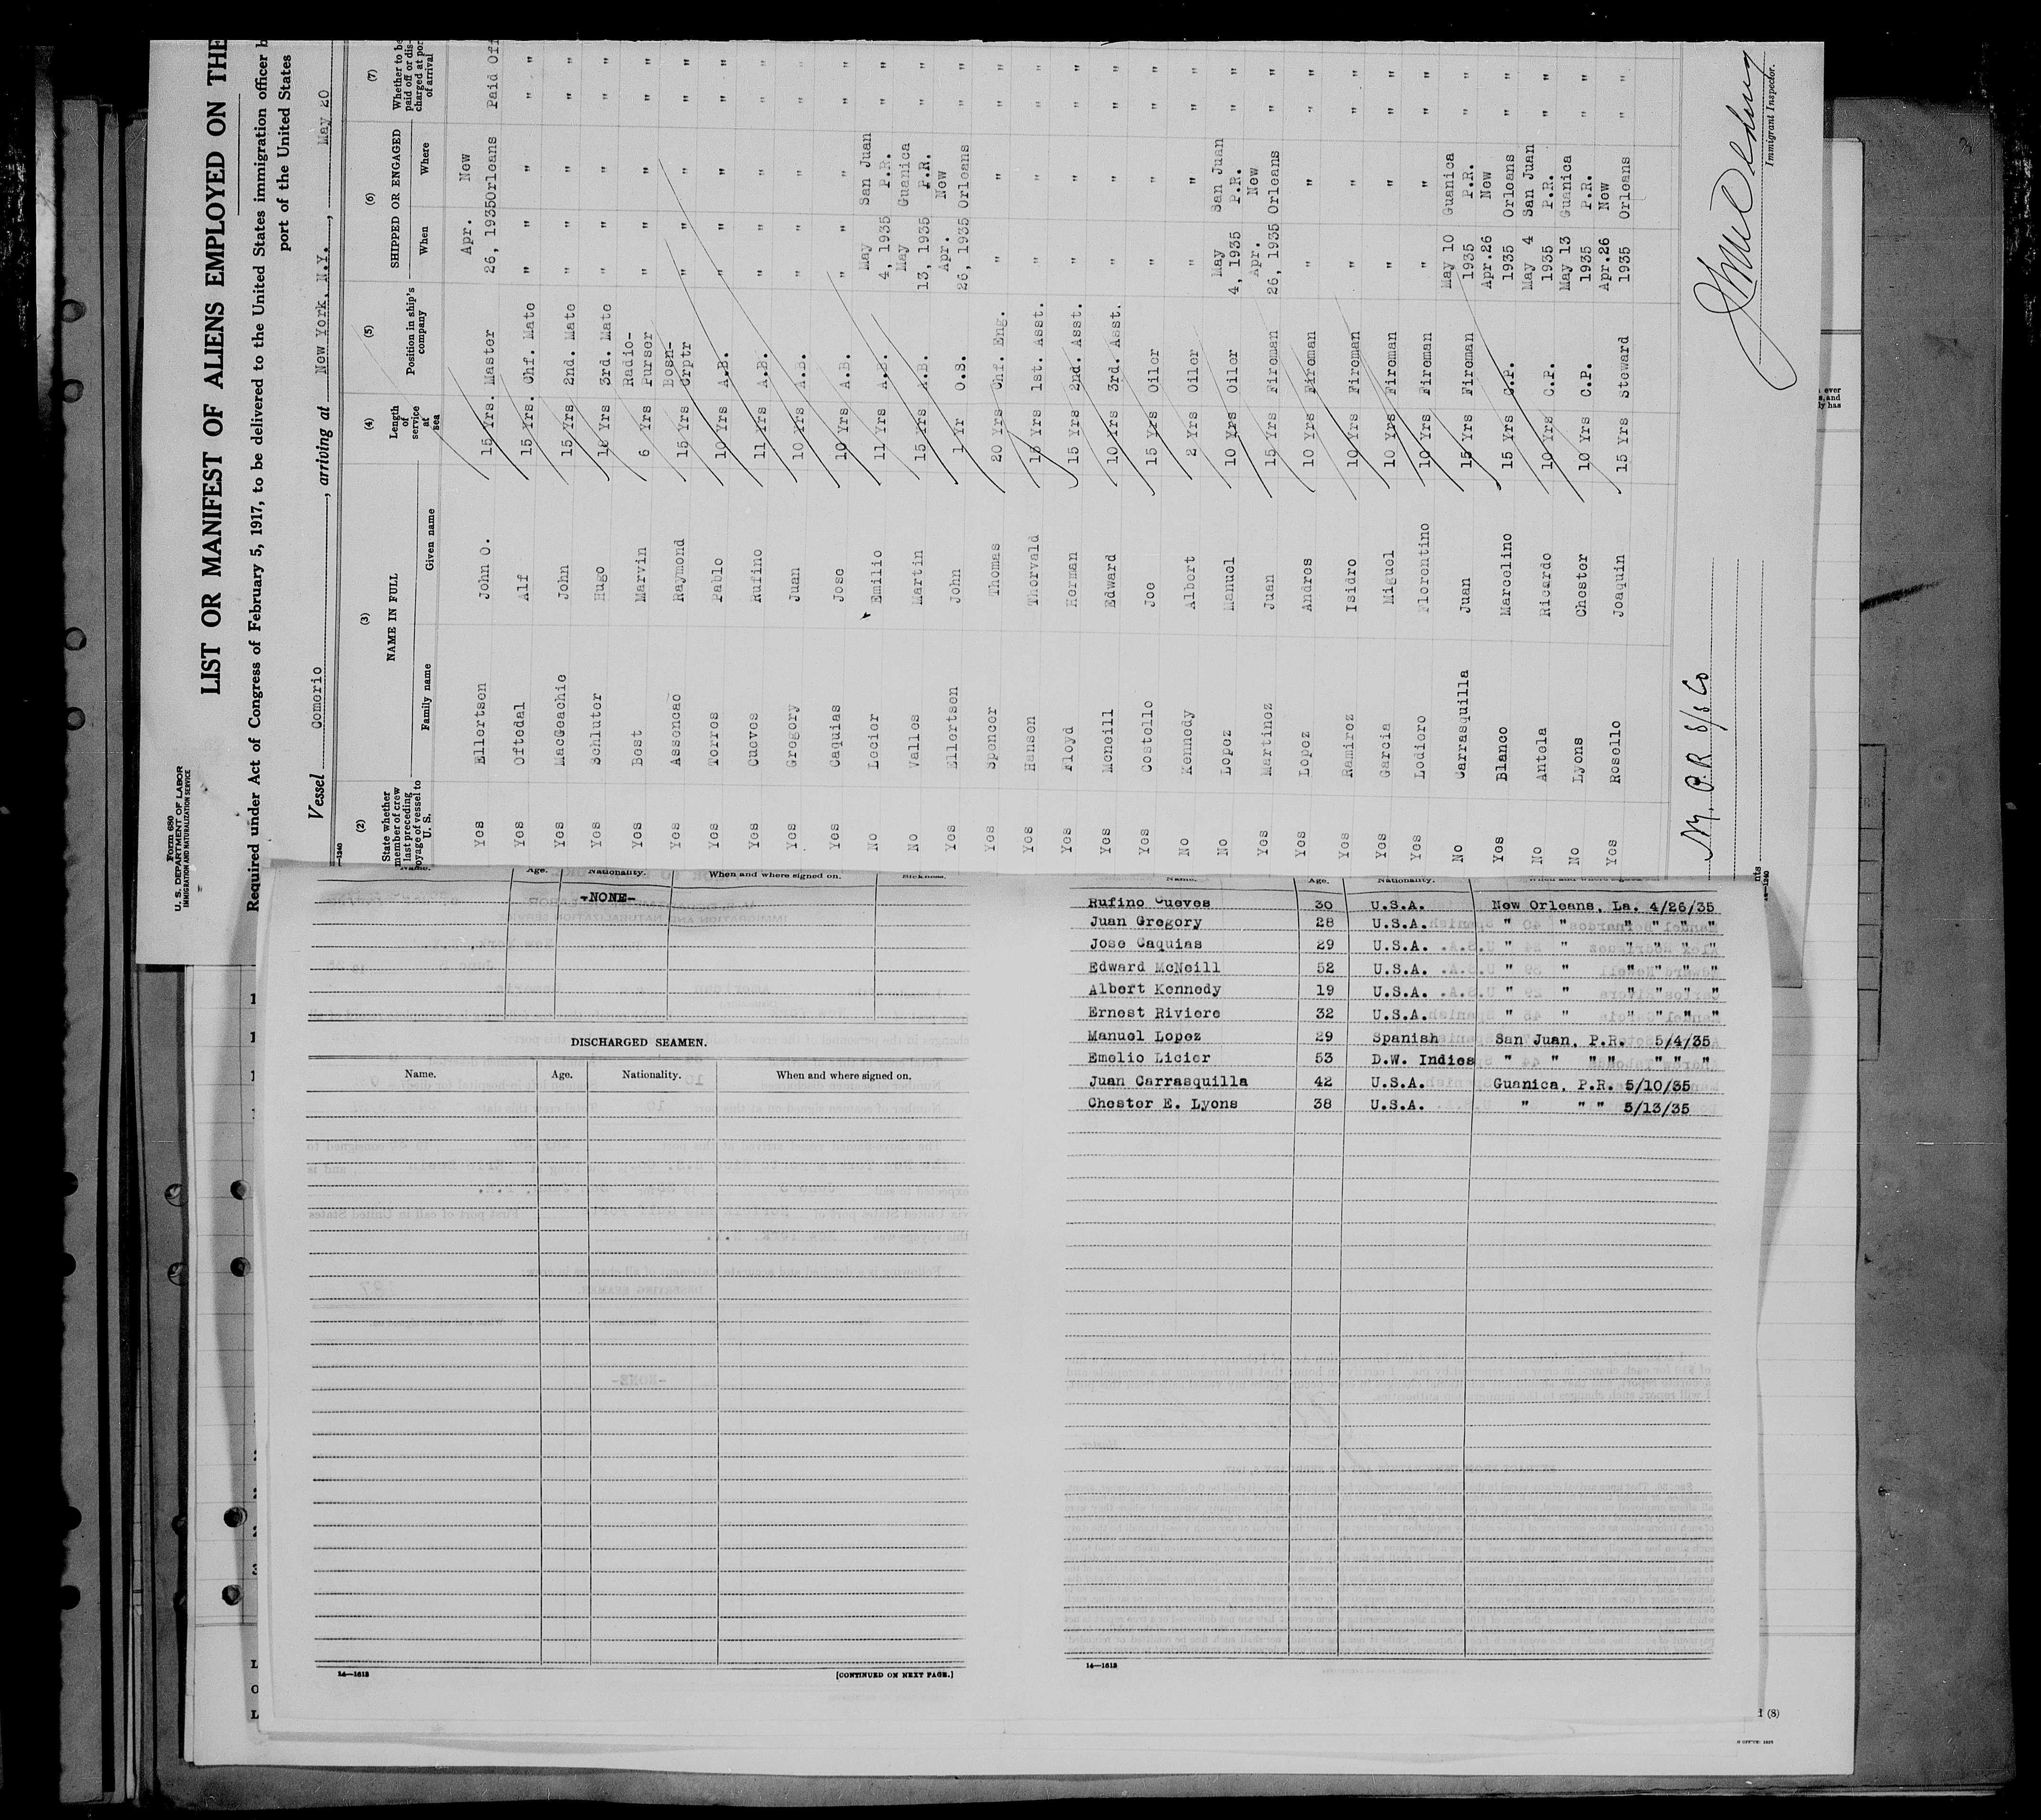 Form 680
U. S. DEPARTMENT OF LABOR
IMMIGRATION AND NATURALIZATION SERVICE
LIST OR MANIFEST OF ALIENS EMPLOYED ON THE
Required under Act of Congress of February 5, 1917, to be delivered to the United States immigration officer b
port of the United States
Vessel Comerio, arriving at New York, N.Y., May 20
(2) (3) (4) (5) (6) (7)
State whether member of crew last preceding voyage of vessel to U. S.
NAME IN FULL
Family name Given name
Length of service at sea
Position in ship's company
SHIPPED OR ENGAGED
When Where
Whether to be paid off or discharged at port of arrival
Yes Ellertsen John O. 15 Yrs. Master Apr. 26, 1935 New Orleans Paid Off
Yes Oftedal Alf 15 Yrs. Chf. Mate " " " " "
Yes MacGeachie John 15 Yrs 2nd. Mate " " " " "
Yes Schluter Hugo 18 Yrs 3rd. Mate " " " " "
Yes Best Marvin 6 Yrs Radio-Purser " " " " "
Yes Assencao Raymond 15 Yrs Bosn-Crptr " " " " "
Yes Torres Pablo 10 Yrs A.B. " " " " "
Yes Cueves Rufino 11 Yrs A.B. " " " " "
Yes Gregory Juan 10 Yrs A.B. " " " " "
Yes Caquias Jose 10 Yrs A.B. " " " " "
No Lecier Emilio 11 Yrs A.B. May 4, 1935 San Juan P.R. " "
No Valles Martin 15 Yrs A.B. May 13, 1935 Guanica P.R. " "
Yes Ellertsen John 1 Yr O.S. Apr. 26, 1935 New Orleans " "
Yes Spencer Thomas 20 Yrs Chf. Eng. " " " "
Yes Hansen Thorvald 15 Yrs 1st. Asst. " " " "
Yes Floyd Herman 15 Yrs 2nd. Asst. " " " "
Yes Mcneill Edward 10 Yrs 3rd. Asst. " " " "
Yes Costello Joe 15 Yrs Oiler " " " "
No Kennedy Albert 2 Yrs Oiler " " " "
No Lopez Manuel 10 Yrs Oiler May 4, 1935 San Juan P.R. " "
Yes Martinez Juan 15 Yrs Fireman Apr. 26, 1935 New Orleans " "
Yes Lopez Andres 10 Yrs Fireman " " " "
Yes Ramirez Isidro 10 Yrs Fireman " " " "
Yes Garcia Miguel 10 Yrs Fireman " " " "
Yes Lodiero Florentino 10 Yrs Fireman " " " "
No Carrasquilla Juan 15 Yrs Fireman May 10 1935 Guanica P.R. " "
Yes Blanco Marcelino 15 Yrs C.P. Apr.26 1935 New Orleans " "
No Antela Ricardo 10 Yrs C.P. May 4 1935 San Juan P.R. " "
No Lyons Chester 10 Yrs C.P. May 13 1935 Guanica P.R. " "
Yes Rosello Joaquin 15 Yrs Steward Apr.26 1935 New Orleans " "
N.Y. & P.R. S/S Co
Immigrant Inspector.
Name. Age. Nationality. When and where signed on. Sickness.
-NONE-
DISCHARGED SEAMEN.
Name. Age. Nationality. When and where signed on.
14—1613
[CONTINUED ON NEXT PAGE.]
Name. Age. Nationality.
Rufino Cueves 30 U.S.A. New Orleans, La. 4/26/35
Juan Gregory 28 U.S.A. " " " " " "
Jose Caquias 29 U.S.A. " " " " " "
Edward McNeill 52 U.S.A. " " " " " "
Albert Kennedy 19 U.S.A. " " " " " "
Ernest Riviere 32 U.S.A. " " " " " "
Manuel Lopez 29 Spanish San Juan, P.R. 5/4/35
Emelio Licier 53 D.W. Indies " " " " " " "
Juan Carrasquilla 42 U.S.A. Guanica, P.R. 5/10/35
Chester E. Lyons 38 U.S.A. " " " 5/13/35
14—1613
(8)